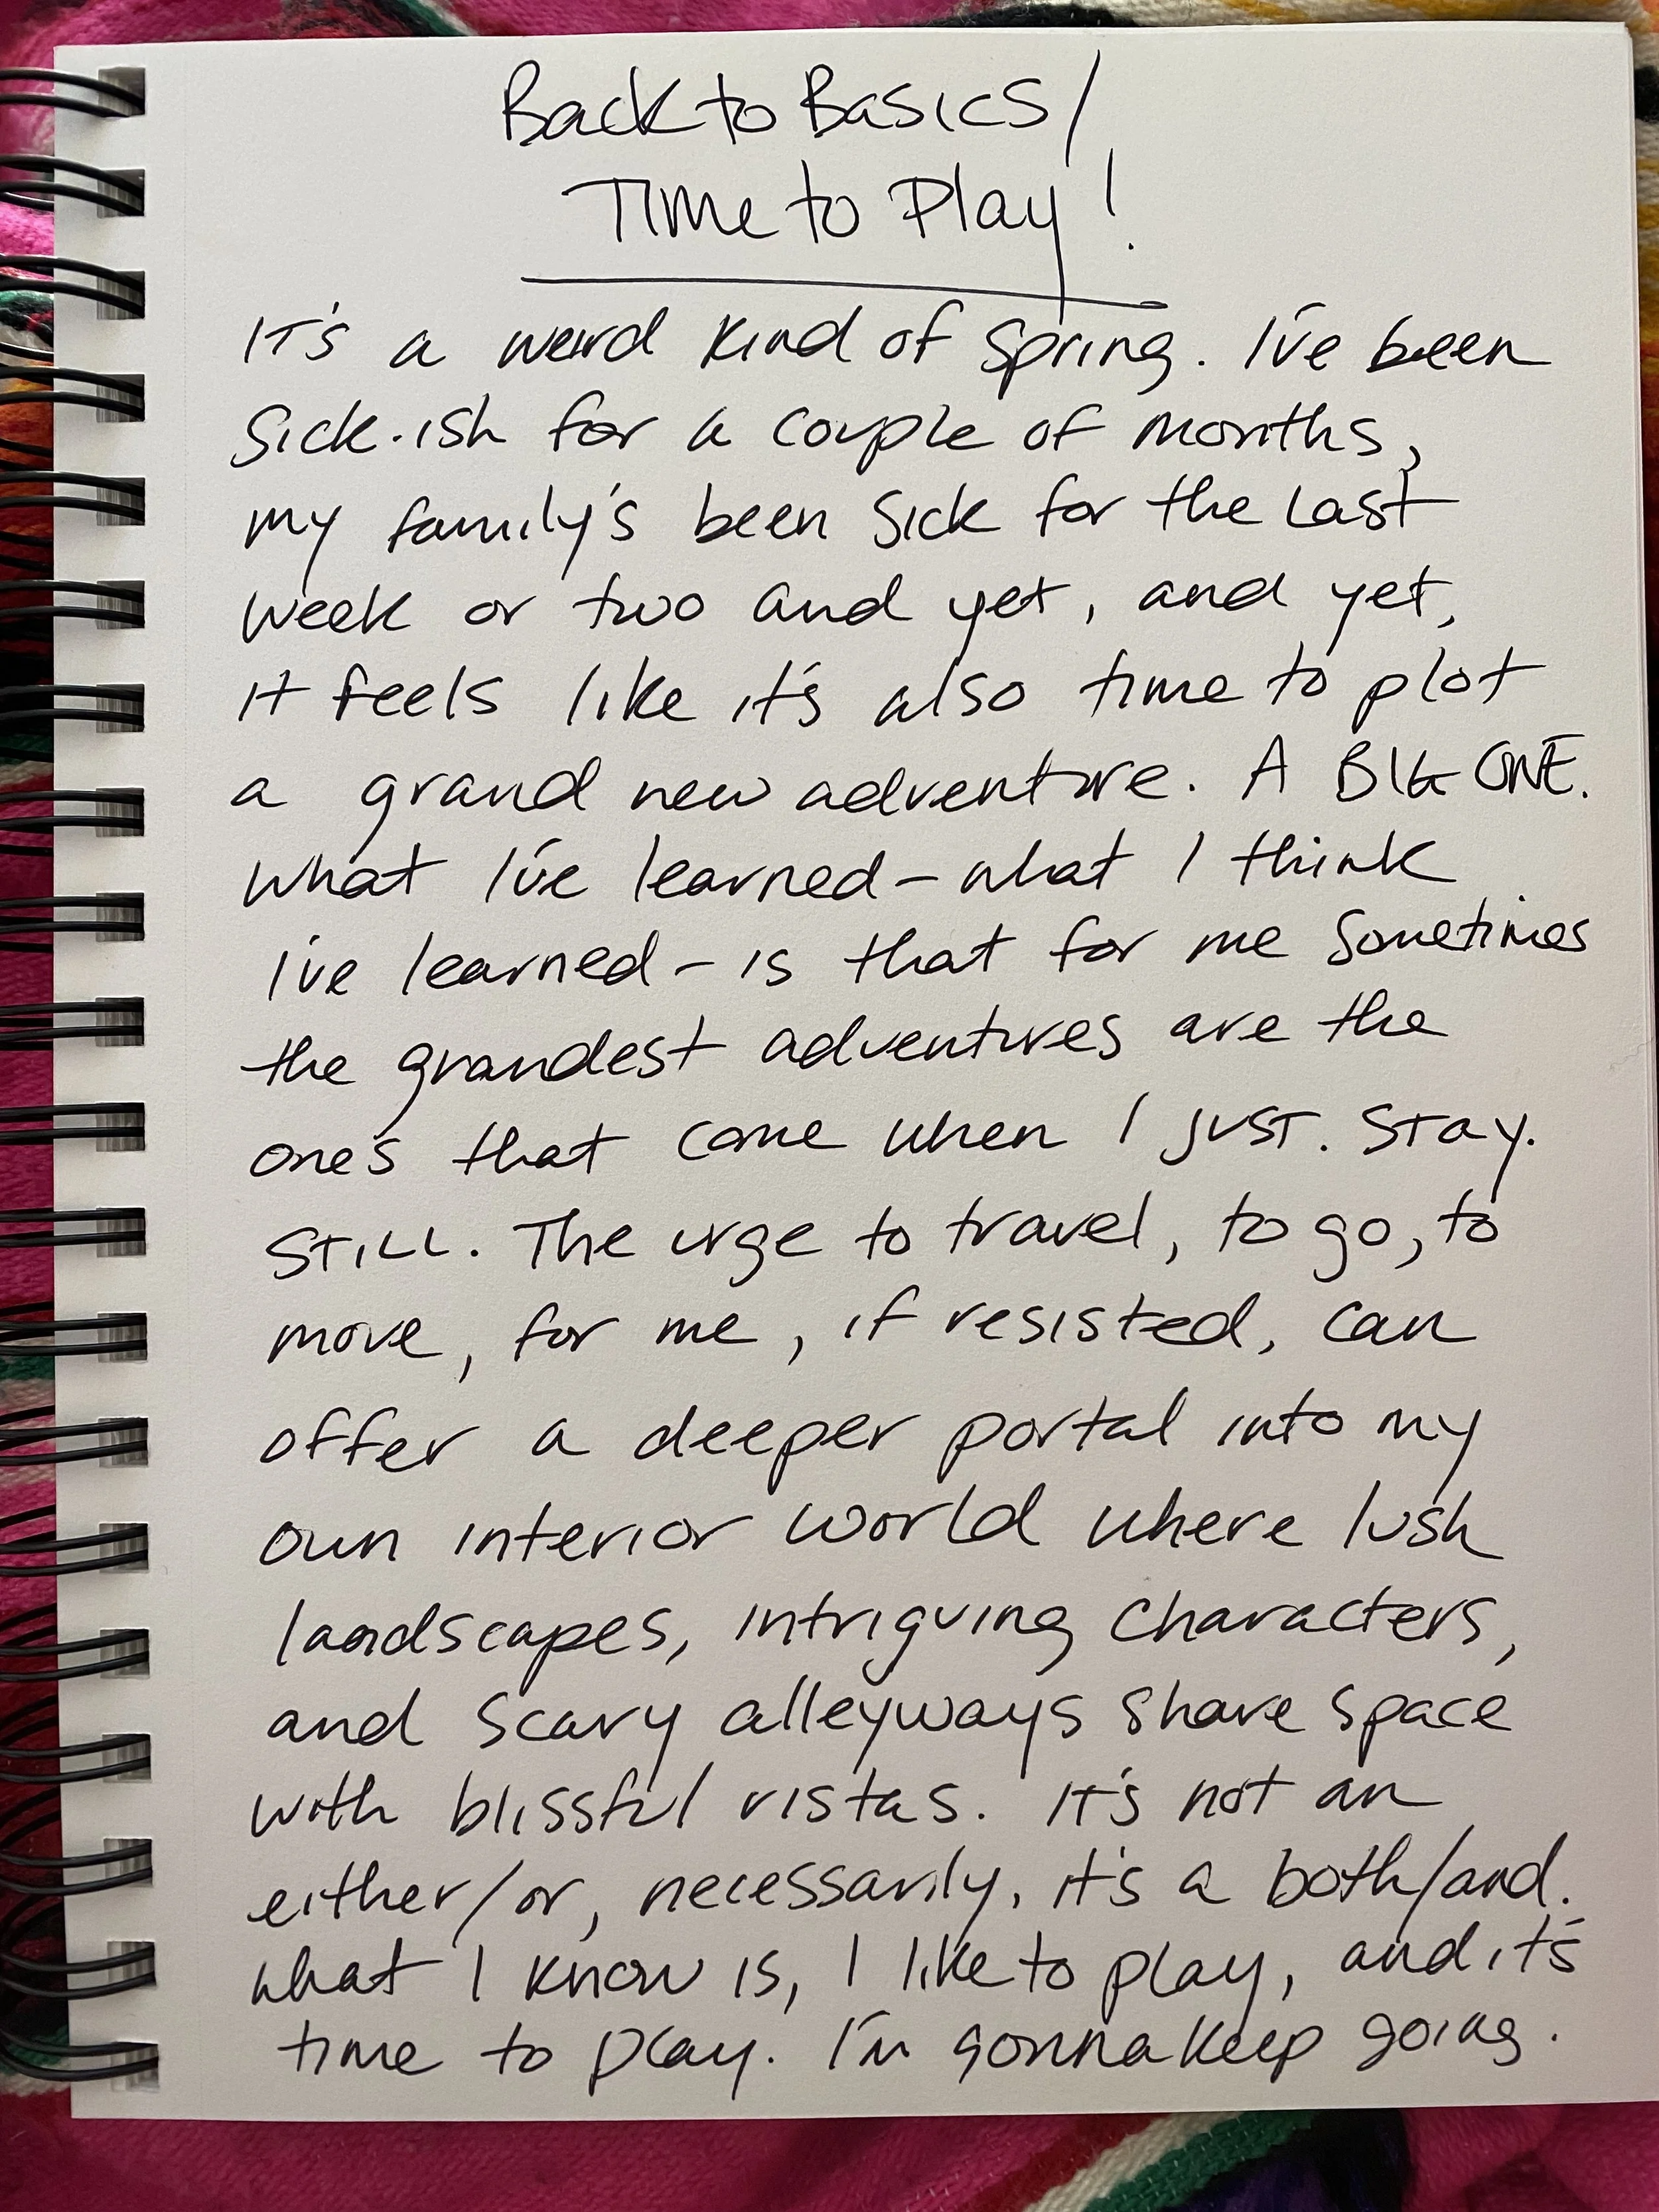 Back to Basics/
Time to Play!
It's a weird kind of spring. I've been
sick-ish for a couple of months,
my family's been sick for the last
week or two and yet, and yet,
it feels like it's also time to plot
a grand new adventure. A BIG ONE.
What I've learned - what I think
I've learned - is that for me sometimes
the grandest adventures are the
ones that come when I just. Stay.
STILL. The urge to travel, to go, to
move, for me, if resisted, can
offer a deeper portal into my
own interior world where lush
landscapes, intriguing characters,
and scary alleyways share space
with blissful vistas. It's not an
either/or, necessarily, it's a both/and.
What I know is, I like to play, and it's
time to play. I'm gonna keep going.